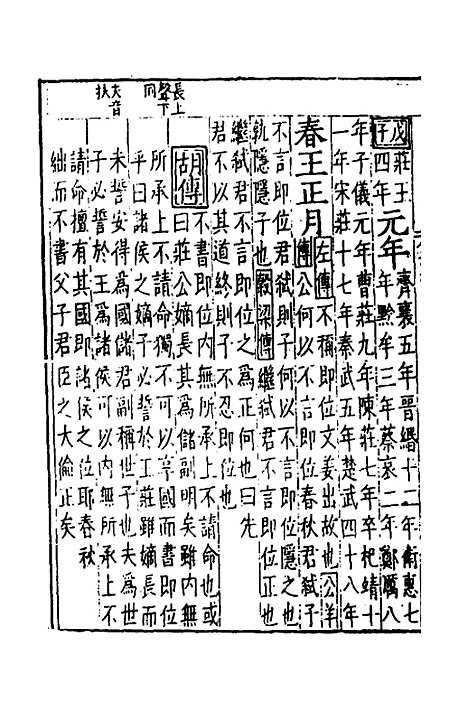 長上
聲下
同
夫音
扶
戊子
莊王
四年
元年
齊襄五年晉緡十二年衛惠七
年黔牟三年蔡哀二年鄭厲八
年子儀元年曹莊九年陳莊七年卒杞靖十
一年宋莊十七年秦武五年楚武四十八年
春王正月
左傳不稱即位文姜出故也公羊
傳公何以不言即位春秋君弒子
不言即位君弒則子何以不言即位隱之也
孰隱隱子也穀梁傳繼弒君不言即位正也
繼弒君不言即位之為正何也曰先
君不以其道終則子不忍即位也
胡傳
不書即位內無所承上不請命也或
曰莊公嫡長其為儲副明矣雖內有
所承上不請命獨不可以享國而書即位
乎曰諸侯之嫡子必誓於王莊雖嫡長而
未誓安得為國儲君副稱世子也夫為世
子必誓於王為諸侯可以內無所承上不
請命擅有其國即諸侯之位耶春秋
絀而不書父子君臣之大倫正矣